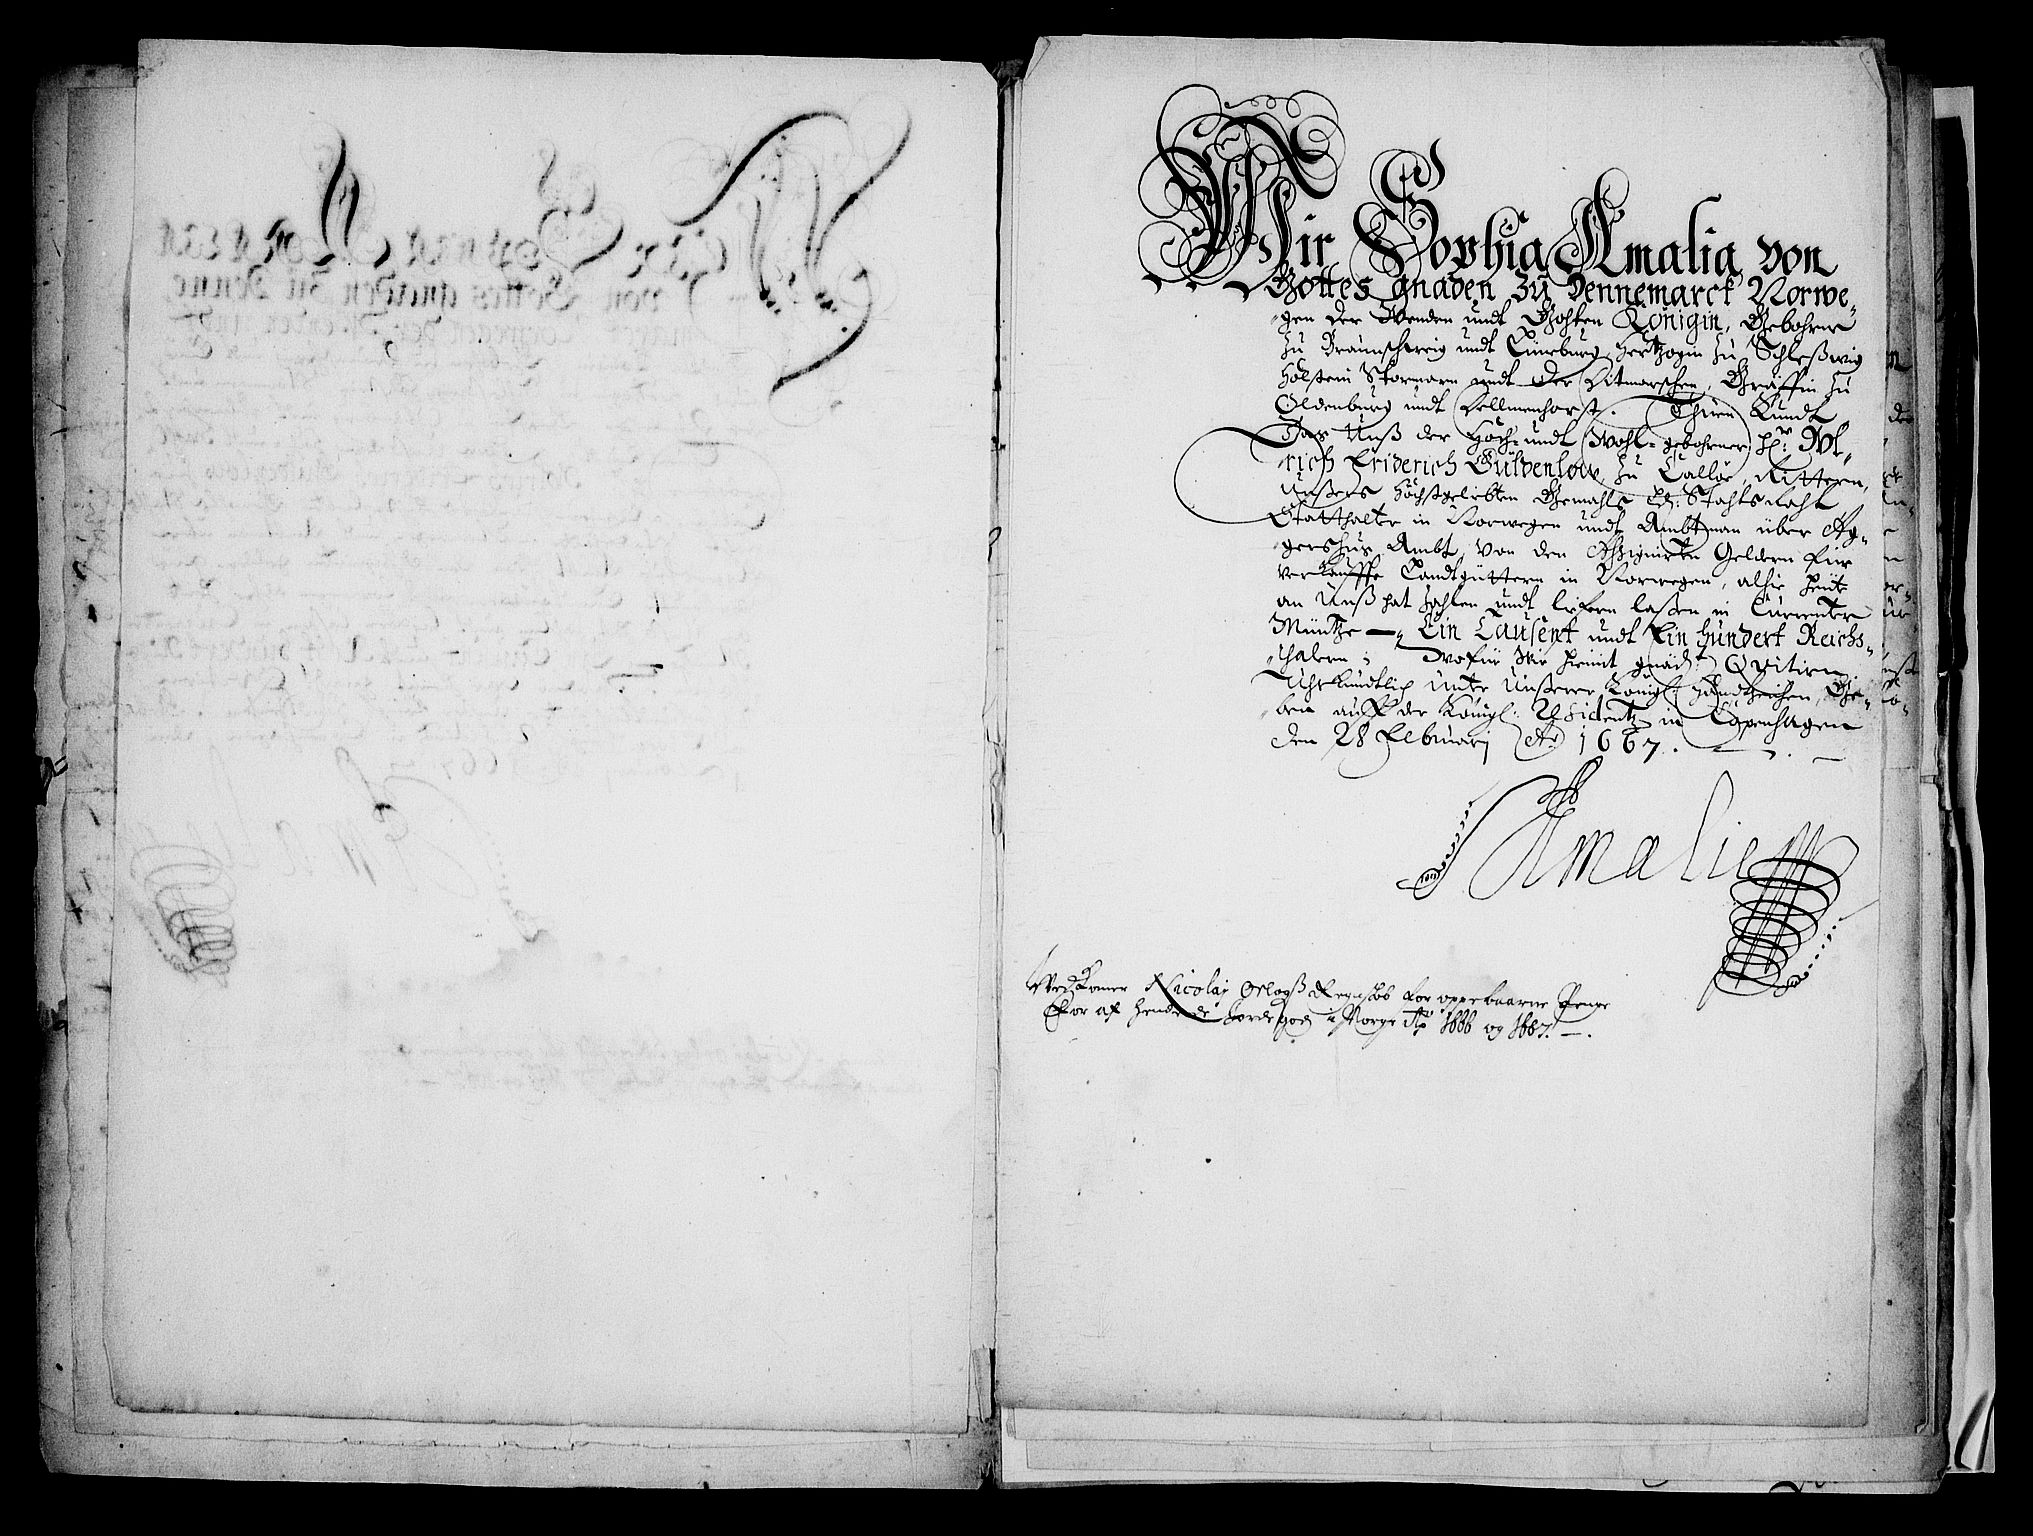 Wir Sophia Amalia von
Gottes gnaden zu Dennemarck Norwe-
gen der Wenden undt Gohten Königin, Gebohrne
zu Braunschweig undt Lüneburg Hertzogin zu Schleßwig
Holstein Stormarn undt der Ditmarschen, Gräffin zu
Oldenburg undt Dellmenhorst. Thuen Kundt
Das Unß der Hoch- undt Wohl-gebohrner Hr: Vl-
rich Friderich Güldenlow, zu Calloe, Rittern,
Unßers Höchstgeliebten Gemahls Stahts Raht
Statthalter in Norwegen undt Ambtman über Ag-
gershus Ambt, von den Assignirten Geldern für
verkauffte Landtgüttern in Norwegen, alhie heute
an Unß hat zahlen undt liefern laßen in Currenter
Müntze — Ein Tausent undt Ein hundert Reichs-
thalern; Wofür Wir hiemit gnäd: Quitiren.
Uhrkundtlich unter Unßerer Königl: Handtzeichen, Ge-
ben auff der Königl: Residentz in Copenhagen
den 28 Februarj Ao: 1667.
Amalie
Vedkomer Nicolaj Regnskb for oppebaarne Penge
for af hende de Jordegods i Norge Ao 1666 og 1667.